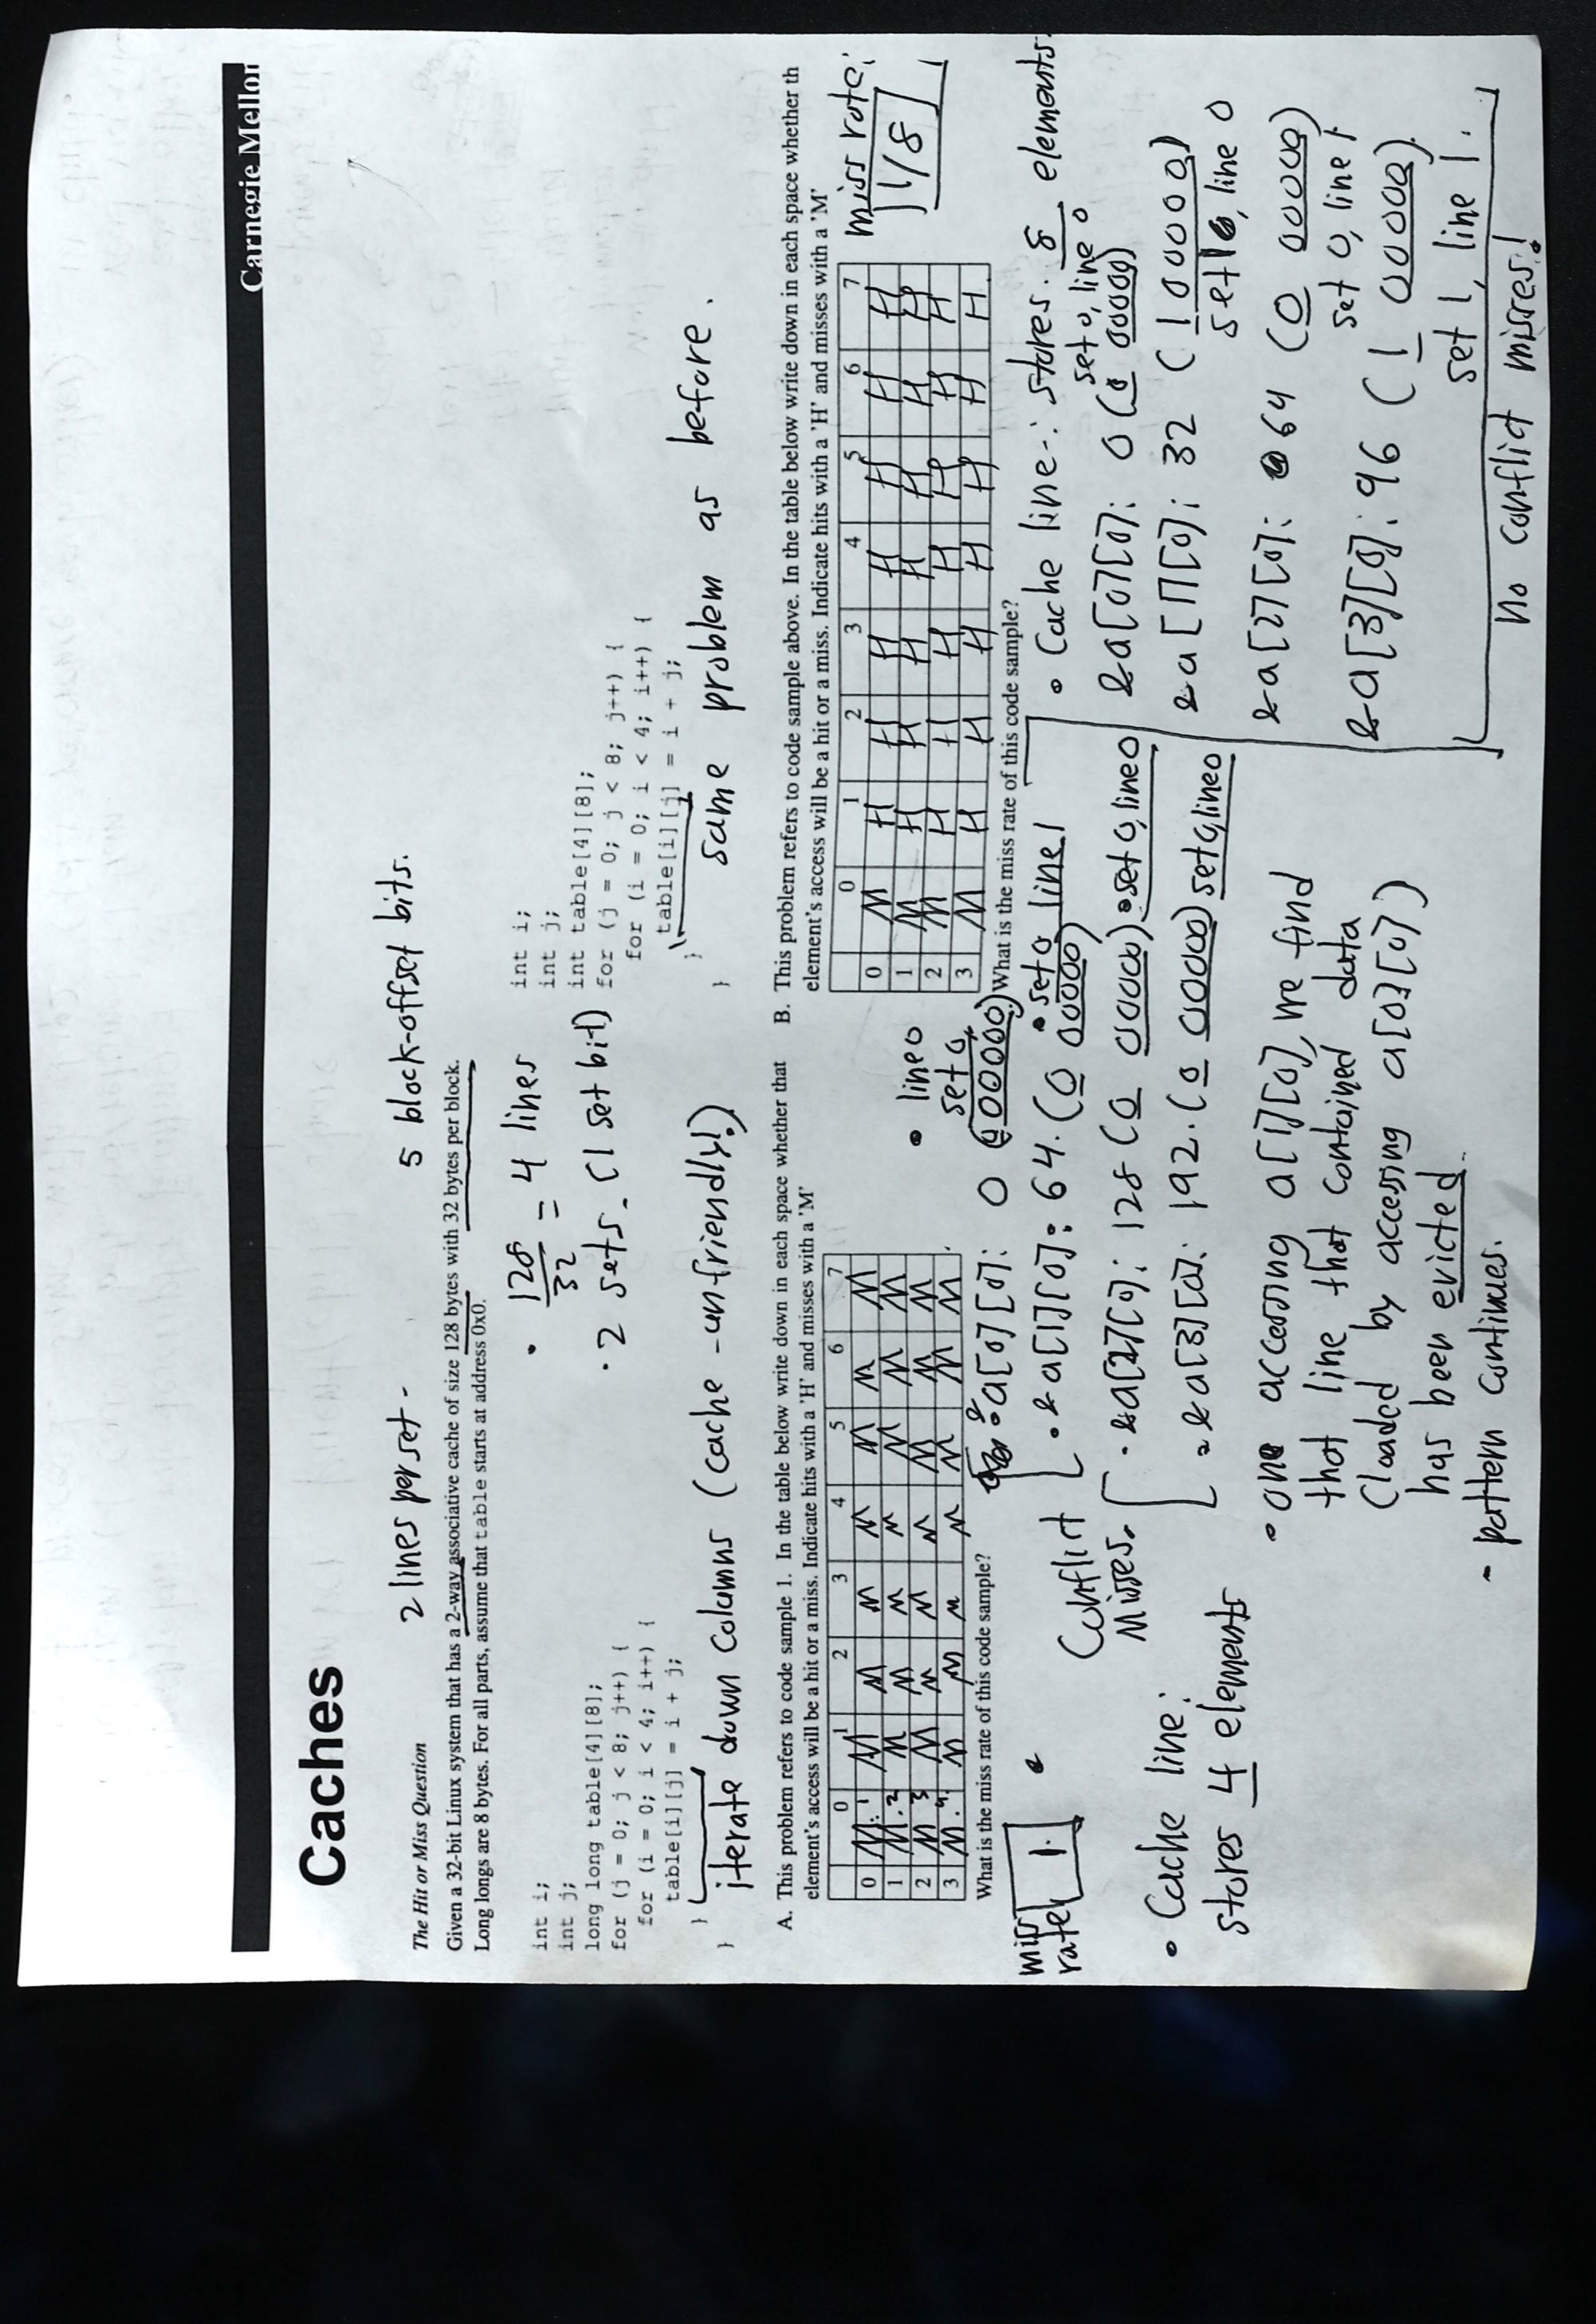 Carnegie Mellon
Caches
The Hit or Miss Question
2 lines per set.
5 block-offset bits.
Given a 32-bit Linux system that has a 2-way associative cache of size 128 bytes with 32 bytes per block.
Long longs are 8 bytes. For all parts, assume that table starts at address 0x0.
• 128/32 = 4 lines
• 2 sets. (1 set bit)
int i;
int j;
long long table[4][8];
for (j = 0; j < 8; j++) {
for (i = 0; i < 4; i++) {
table[i][j] = i + j;
}
}
iterate down columns (cache-unfriendly!)
int i;
int j;
int table[4][8];
for (j = 0; j < 8; j++) {
for (i = 0; i < 4; i++) {
table[i][j] = i + j;
}
}
same problem as before.
A. This problem refers to code sample 1. In the table below write down in each space whether that
element's access will be a hit or a miss. Indicate hits with a 'H' and misses with a 'M'
0 1 2 3 4 5 6 7
0 M.1 M M M M M M M
1 M.2 M M M M M M M
2 M 3 M M M M M M M
3 M.4. M M M M M M M
What is the miss rate of this code sample?
miss
rate
1.
• Cache line:
stores 4 elements
Conflict
Misses.
• line 0
set 0,
&a[0][0]: 0 (0 00000)
• &a[1][0]: 64. (0 00000) • set 0 line 1
• &a[2][0]: 128 (0 00000) • set 0, line 0
• &a[3][0]: 192. (0 00000) set 0, line 0
• one accessing a[1][0], we find
that line that contained data
(loaded by accessing a[0][0])
has been evicted.
- pattern continues.
B. This problem refers to code sample above. In the table below write down in each space whether th
element's access will be a hit or a miss. Indicate hits with a 'H' and misses with a 'M'
0 1 2 3 4 5 6 7
0 M H H H H H H H
1 M H H H H H H H
2 M H H H H H H H
3 M H H H H H H H
miss rate:
1/8
What is the miss rate of this code sample?
• Cache line: stores 8 elements.
set 0, line 0
&a[0][0]: 0 (0 00000)
&a[1][0]: 32 (1 00000)
set 1, line 0
&a[2][0]: 64 (0 00000)
set 0, line 1
&a[3][0]: 96 (1 00000).
set 1, line 1.
No conflict misses!